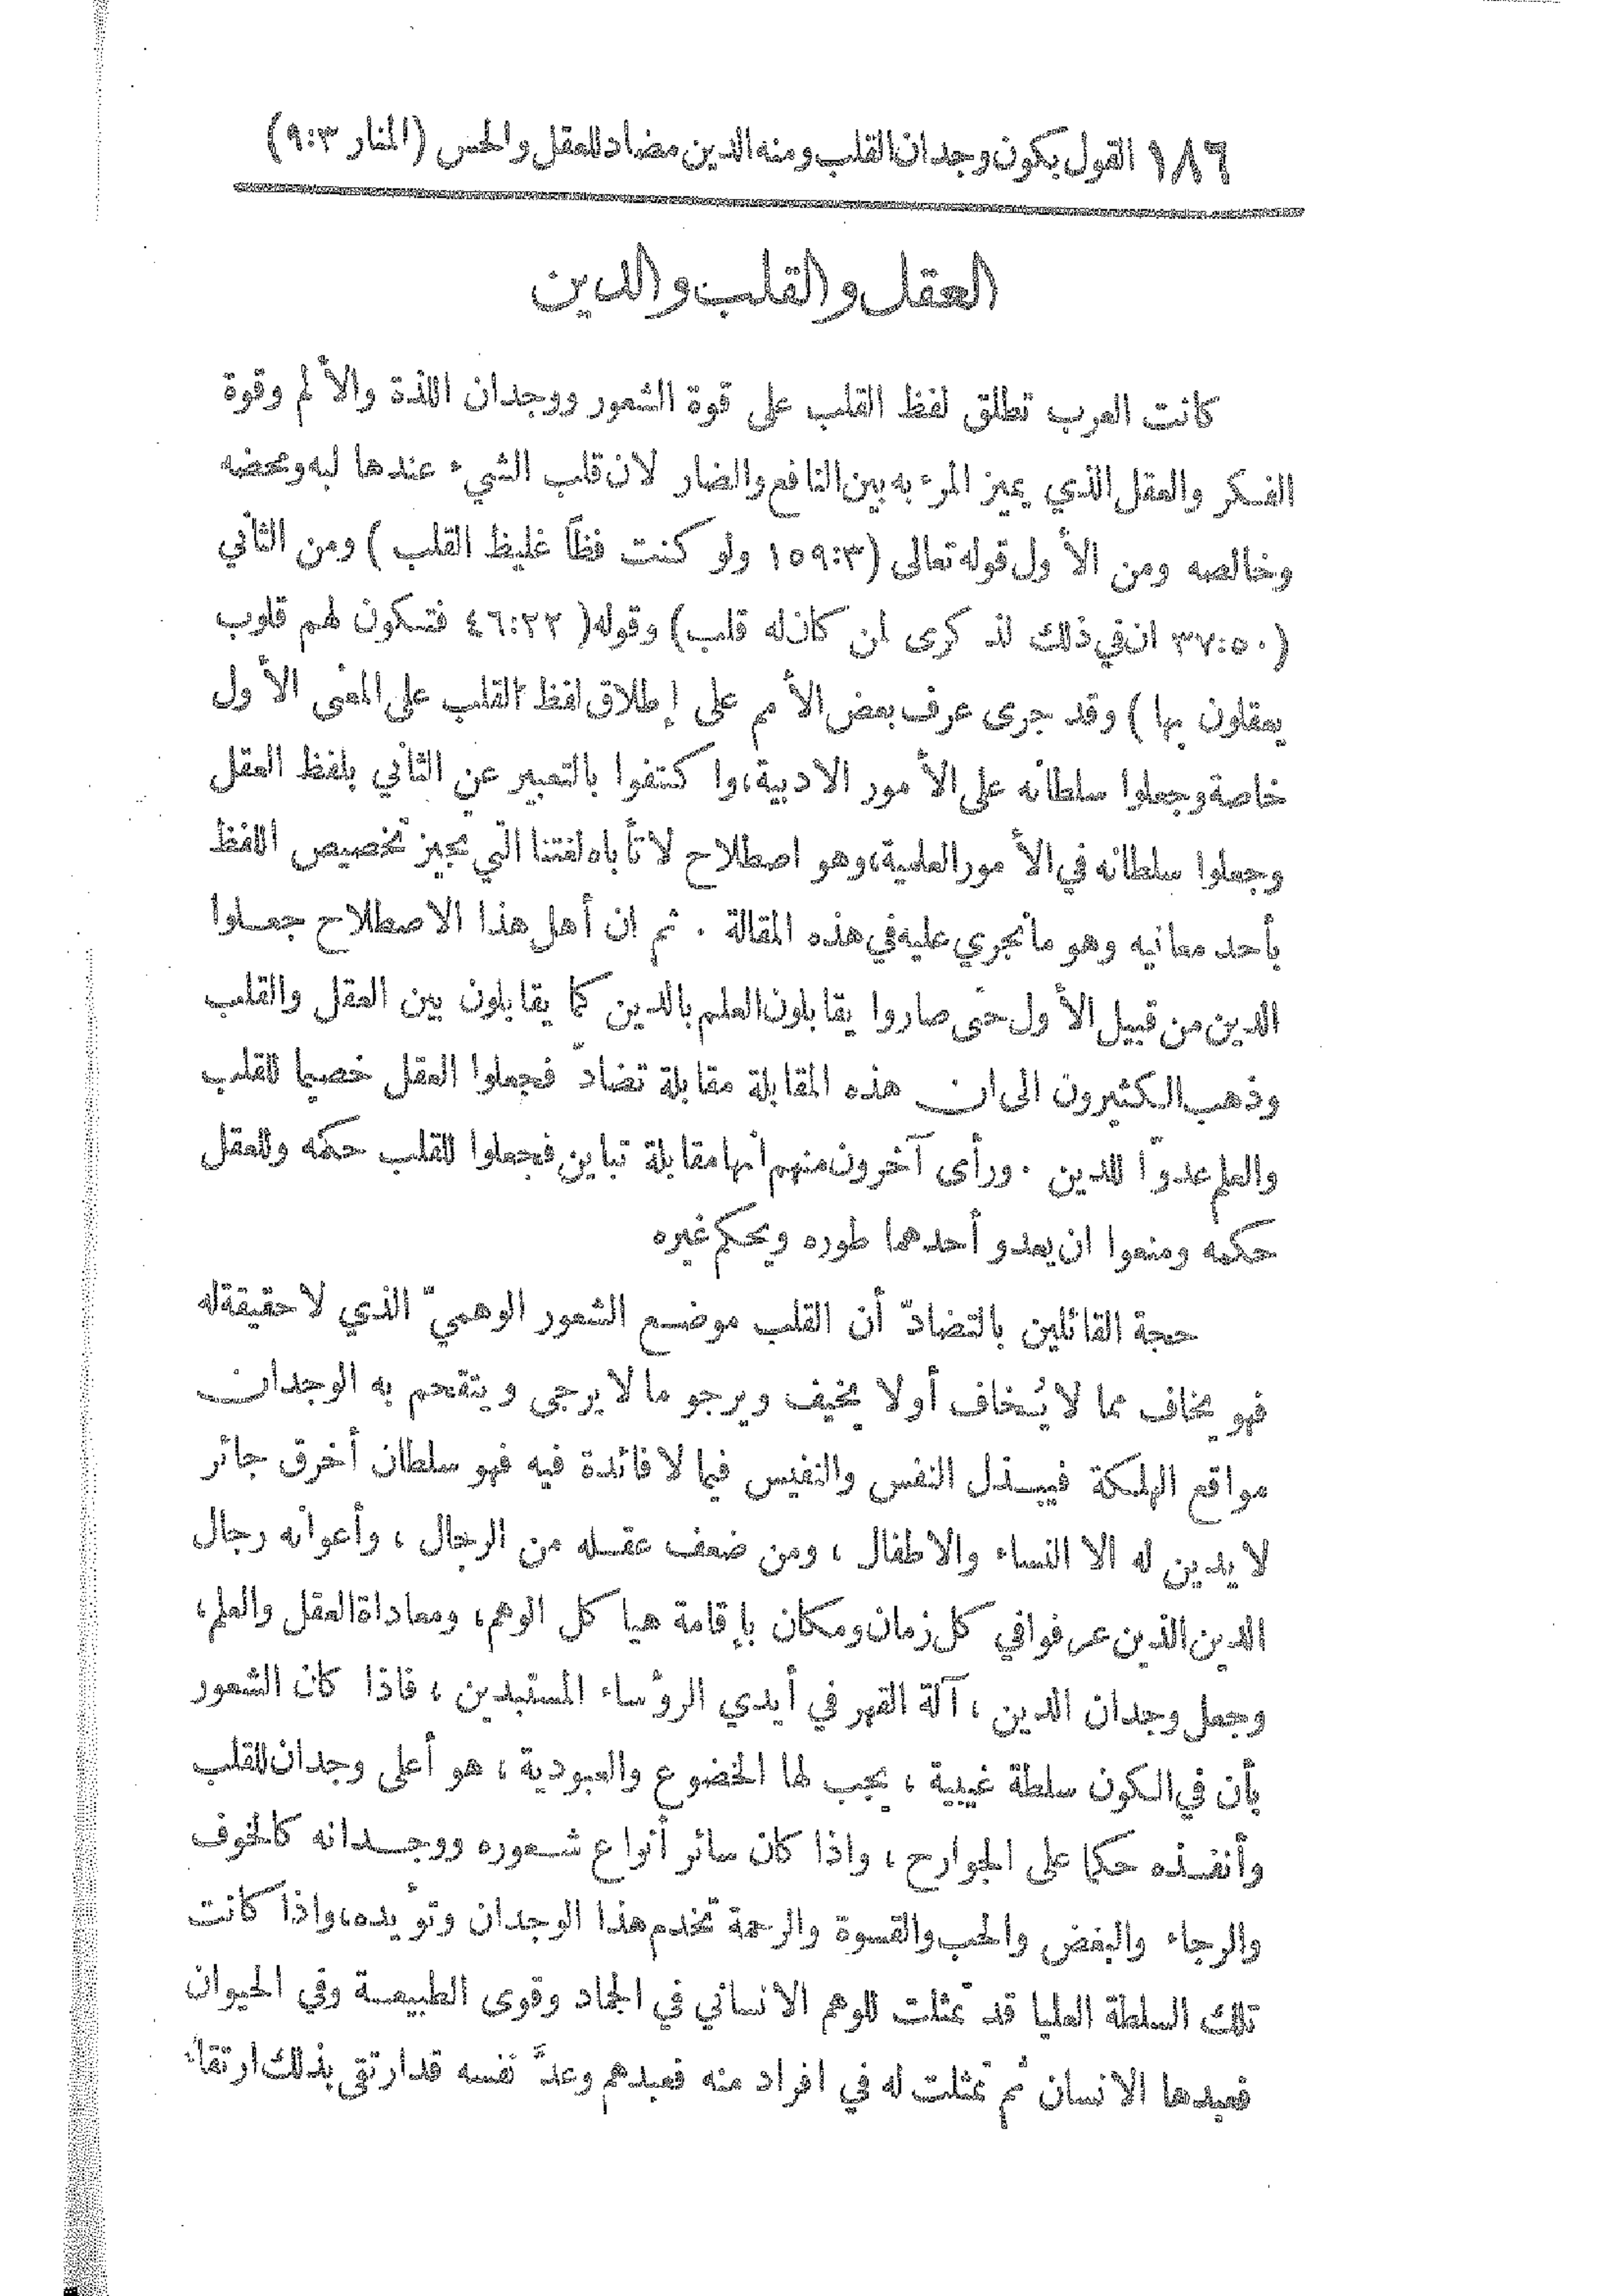 ١٨٦ القول بكون وجدان القلب ومنه الدين مضاد للعقل والحس (المنار ٩:٣)
العقل والقلب والدين
كانت العرب تطلق لفظ القلب على قوة الشعور ووجدان اللذة والألم وقوة
الفكر والعقل الذي يميز المرء به بين النافع والضار لان قلب الشيء عندها لبه ومحضه
وخالصه ومن الأول قوله تعالى (١٥٩:٣ ولو كنت فظًا غليظ القلب) ومن الثاني
(٣٧:٥٠ ان في ذلك لذكرى لمن كان له قلب) وقوله (٤٦:٢٢ فتكون لهم قلوب
يعقلون بها) وقد جرى عرف بعض الأمم على إطلاق لفظ القلب على المعنى الأول
خاصة وجعلوا سلطانه على الأمور الادبية، واكتفوا بالتعبير عن الثاني بلفظ العقل
وجعلوا سلطانه في الأمور العلمية، وهو اصطلاح لا تأباه لغتنا التي تجيز تخصيص اللفظ
بأحد معانيه وهو ما نجري عليه في هذه المقالة . ثم ان أهل هذا الاصطلاح جعلوا
الدين من قبيل الأول حتى صاروا يقابلون العلم بالدين كما يقابلون بين العقل والقلب
وذهب الكثيرون الى ان هذه المقابلة مقابلة تضادّ فجعلوا العقل خصيما للقلب
والعلم عدوّا للدين . ورأى آخرون منهم انها مقابلة تباين فجعلوا للقلب حكمه وللعقل
حكمه ومنعوا ان يعدو أحدهما طوره ويحكم غيره
حجة القائلين بالتضادّ أن القلب موضع الشعور الوهميّ الذي لا حقيقة له
فهو يخاف مما لا يُخاف أو لا يخيف ويرجو ما لا يرجى ويتقحم به الوجدان
مواقع الهلكة فيبذل النفس والنفيس فيما لا فائدة فيه فهو سلطان أخرق جائر
لا يدين له الا النساء والاطفال ، ومن ضعف عقله من الرجال ، وأعوانه رجال
الدين الذين عرفوا في كل زمان ومكان بإقامة هياكل الوهم، ومعاداة العقل والعلم،
وجعل وجدان الدين ، آلة القهر في أيدي الرؤساء المستبدين ، فاذا كان الشعور
بأن في الكون سلطة غيبية ، يجب لها الخضوع والعبودية ، هو أعلى وجدان للقلب
وأنفذه حكما على الجوارح ، واذا كان سائر أنواع شعوره ووجدانه كالخوف
والرجاء والبغض والحب والقسوة والرحمة تخدم هذا الوجدان وتؤيده، واذا كانت
تلك السلطة العليا قد تمثلت للوهم الانساني في الجماد وقوى الطبيعة وفي الحيوان
فعبدها الانسان ثم تمثلت له في افراد منه فعبدهم وعدَّ نفسه قد ارتقى بذلك ارتقاء